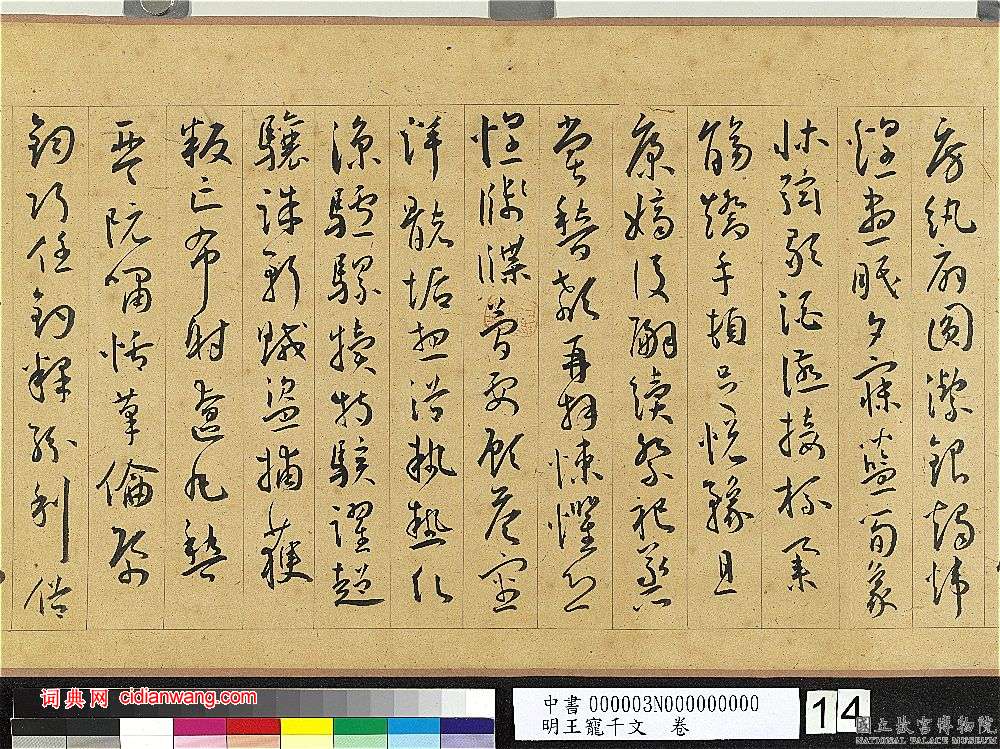 房紈扇圓潔銀燭煒
煌晝眠夕寐藍筍象
牀弦歌酒讌接杯舉
觴矯手頓足悅豫且
康嫡後嗣續祭祀蒸
嘗稽顙再拜悚懼恐
惶牋牒簡要顧答審
詳骸垢想浴執熱願
涼驢騾犢特駭躍超
驤誅斬賊盜捕獲
叛亡布射遼丸嵇
琴阮嘯恬筆倫紙
鈞巧任釣釋紛利俗
词典网 cidianwang.com
中書 000003N000000000
明王寵千文 卷
14
國立故宮博物院
NATIONAL PALACE MUSEUM